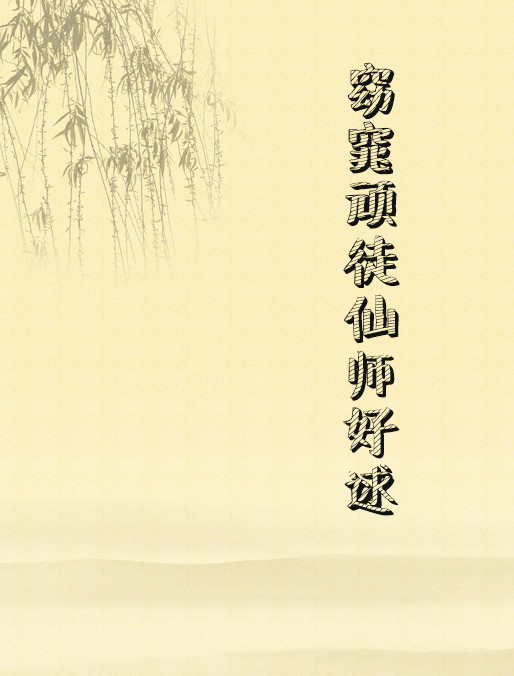 窈窕顽徒仙师好逑